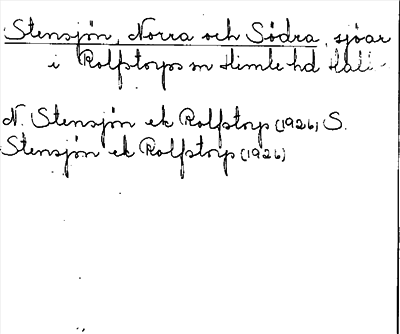 Stensjön, Norra och Södra, sjöar
i Rolfstorps sn Himle hd Hall.
N. Stensjön ek Rolfstorp (1926) S.
Stensjön ek Rolfstorp (1926)